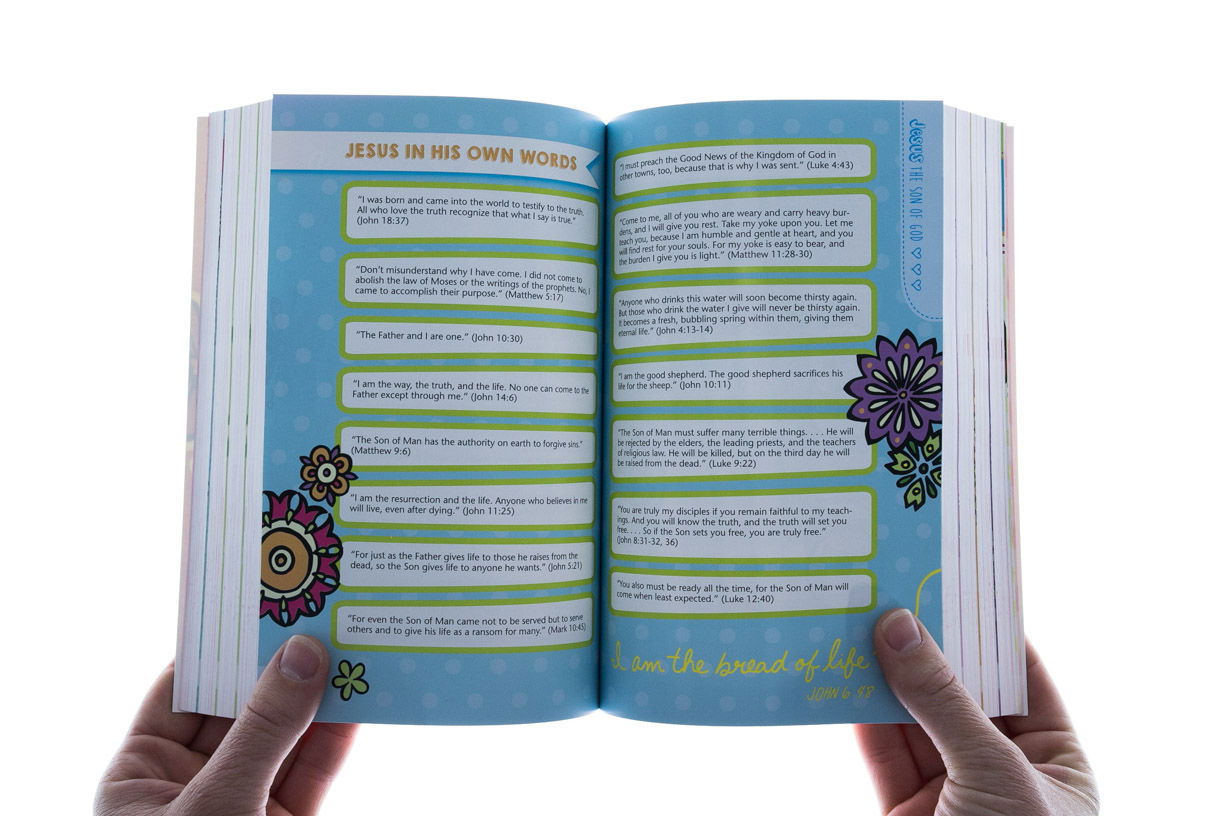 JESUS IN HIS OWN WORDS
“I was born and came into the world to testify to the truth.
All who love the truth recognize that what I say is true.”
(John 18:37)
“Don’t misunderstand why I have come. I did not come to
abolish the law of Moses or the writings of the prophets. No, I
came to accomplish their purpose.” (Matthew 5:17)
“The Father and I are one.” (John 10:30)
“I am the way, the truth, and the life. No one can come to the
Father except through me.” (John 14:6)
“The Son of Man has the authority on earth to forgive sins.”
(Matthew 9:6)
“I am the resurrection and the life. Anyone who believes in me
will live, even after dying.” (John 11:25)
“For just as the Father gives life to those he raises from the
dead, so the Son gives life to anyone he wants.” (John 5:21)
“For even the Son of Man came not to be served but to serve
others and to give his life as a ransom for many.” (Mark 10:45)
“I must preach the Good News of the Kingdom of God in
other towns, too, because that is why I was sent.” (Luke 4:43)
“Come to me, all of you who are weary and carry heavy bur-
dens, and I will give you rest. Take my yoke upon you. Let me
teach you, because I am humble and gentle at heart, and you
will find rest for your souls. For my yoke is easy to bear, and
the burden I give you is light.” (Matthew 11:28-30)
“Anyone who drinks this water will soon become thirsty again.
But those who drink the water I give will never be thirsty again.
It becomes a fresh, bubbling spring within them, giving them
eternal life.” (John 4:13-14)
“I am the good shepherd. The good shepherd sacrifices his
life for the sheep.” (John 10:11)
“The Son of Man must suffer many terrible things. . . . He will
be rejected by the elders, the leading priests, and the teachers
of religious law. He will be killed, but on the third day he will
be raised from the dead.” (Luke 9:22)
“You are truly my disciples if you remain faithful to my teach-
ings. And you will know the truth, and the truth will set you
free. . . . So if the Son sets you free, you are truly free.”
(John 8:31-32, 36)
“You also must be ready all the time, for the Son of Man will
come when least expected.” (Luke 12:40)
I am the bread of life
JOHN 6:48
Jesus THE SON OF GOD